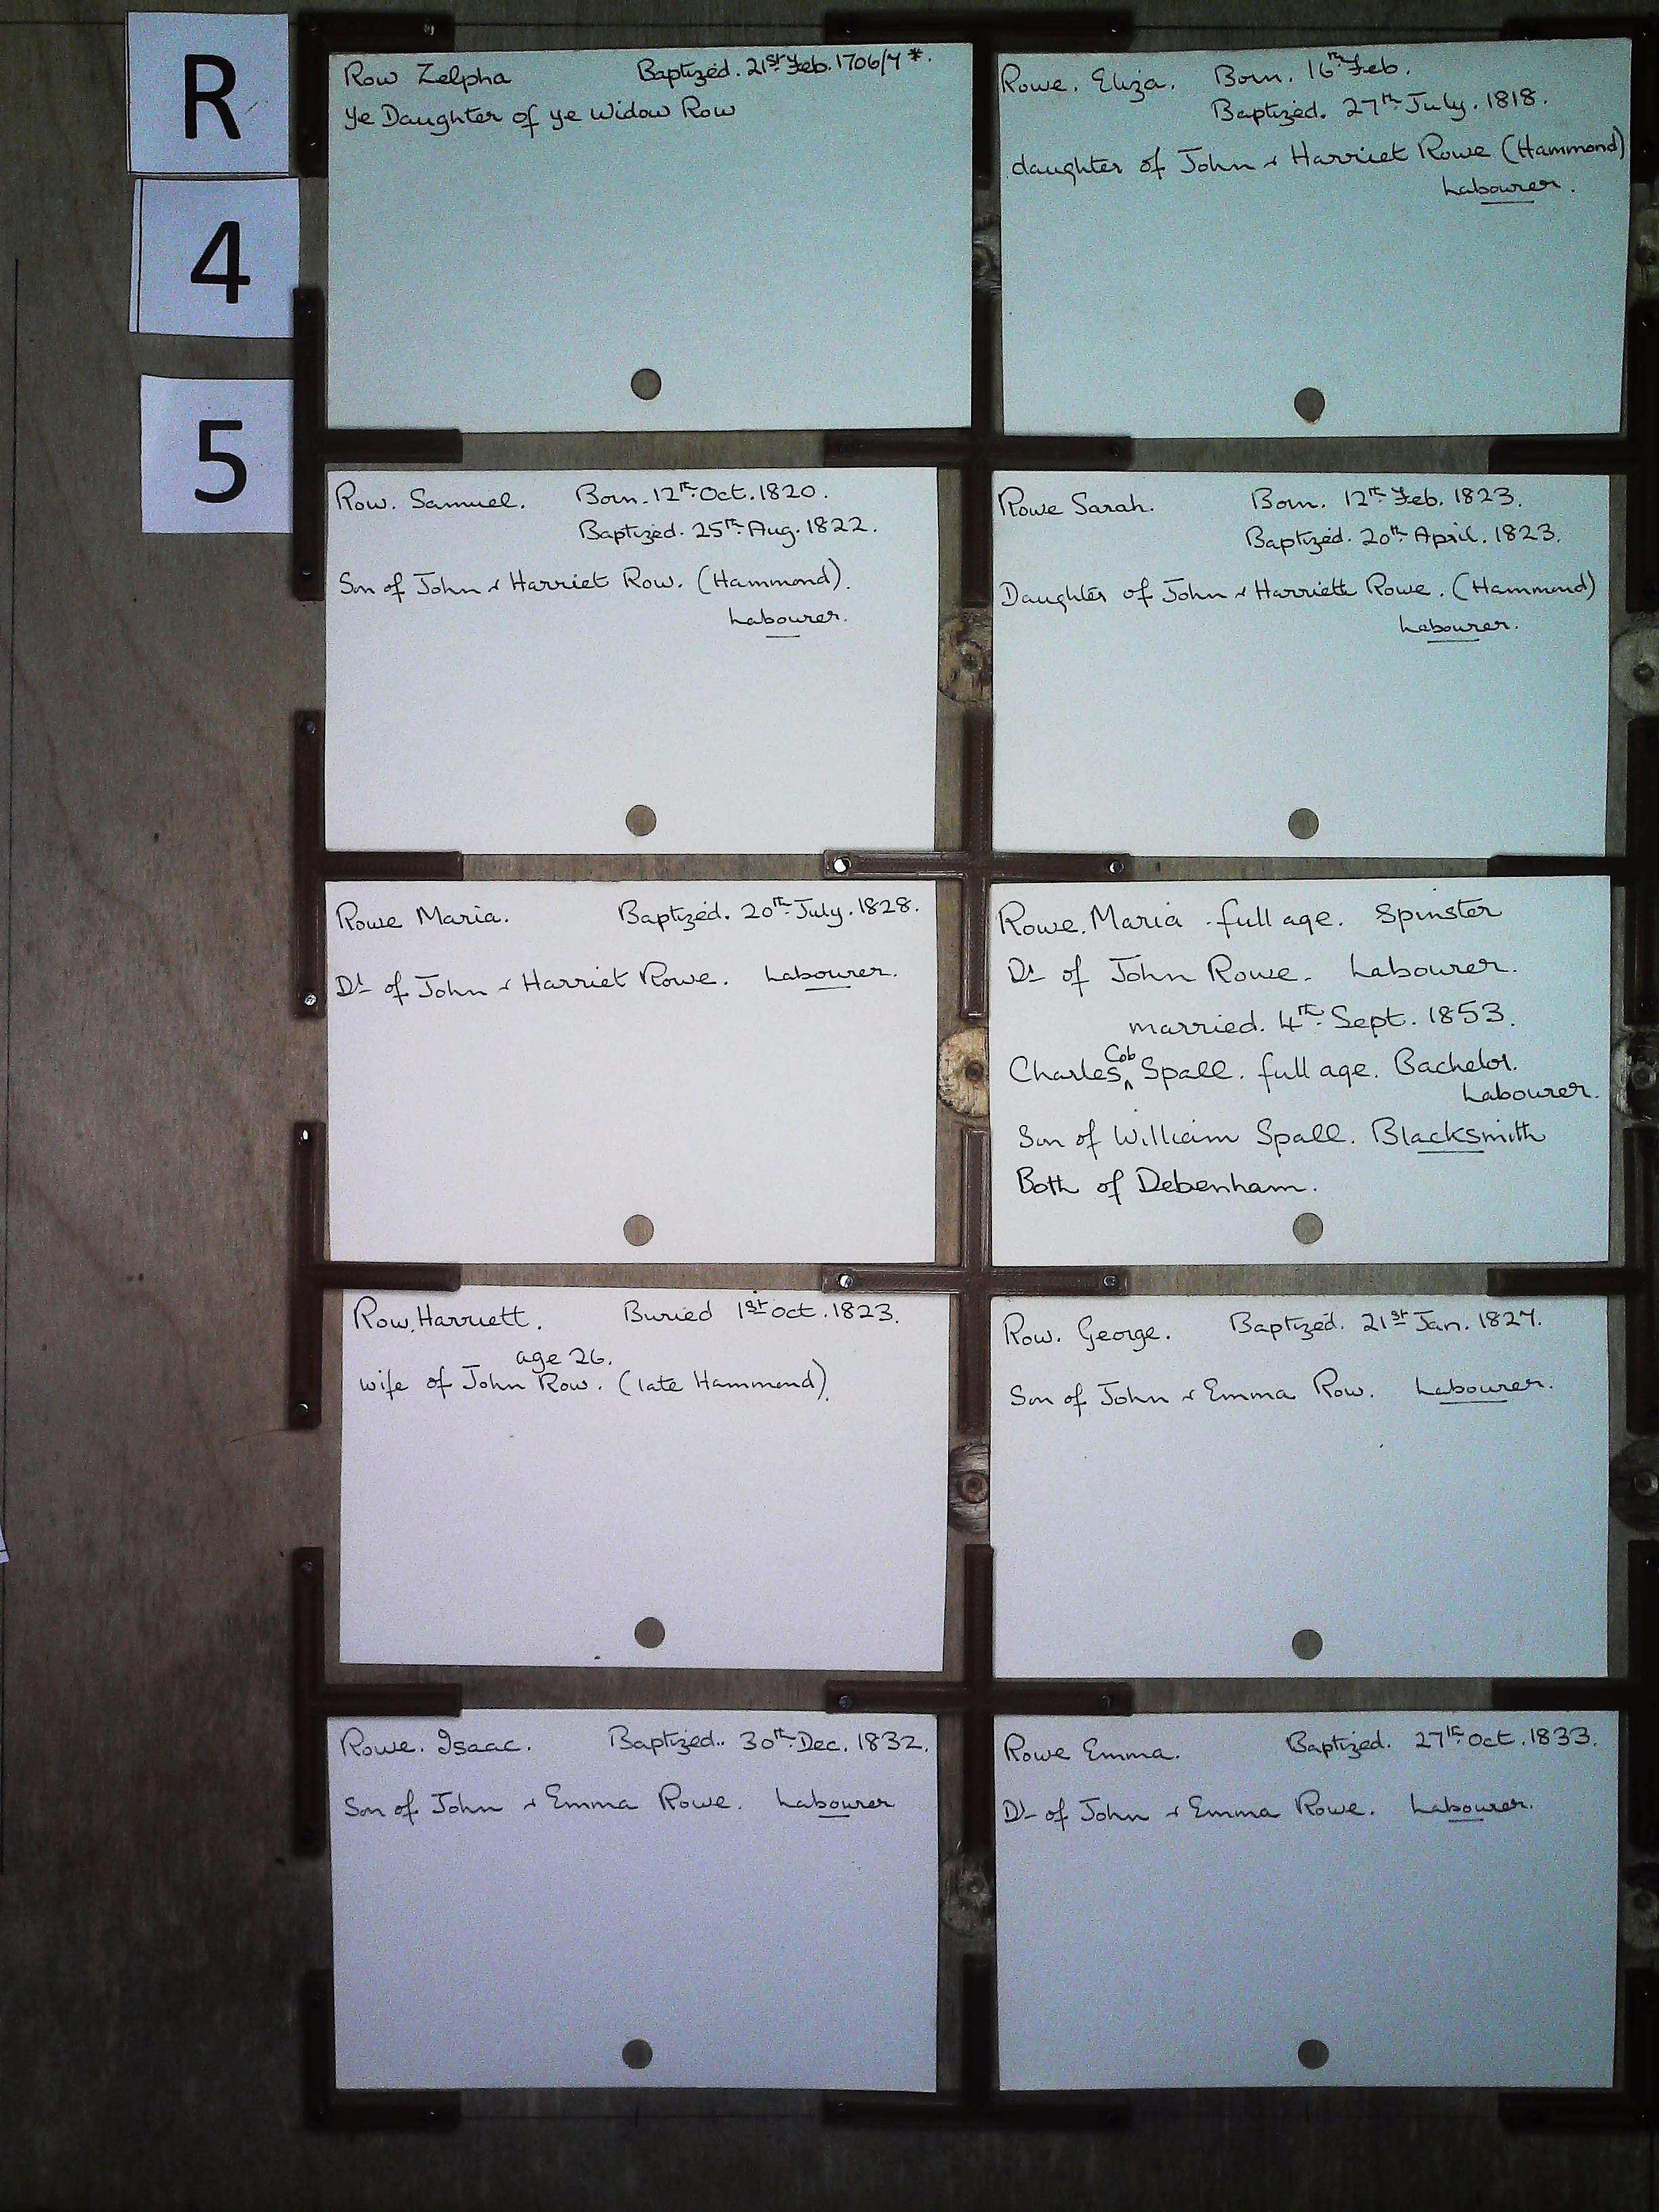 R
4
5
Row Zelpha Baptized. 21st Feb. 1706/7 *.
ye Daughter of ye Widow Row
Rowe. Eliza. Born. 16th Feb.
Baptized. 27th July. 1818.
daughter of John & Harriet Rowe (Hammond)
Labourer.
Row. Samuel. Born. 12th Oct. 1820.
Baptized. 25th Aug. 1822.
Son of John & Harriet Row. (Hammond).
Labourer.
Rowe Sarah. Born. 12th Feb. 1823.
Baptized. 20th April. 1823.
Daughter of John & Harriett Rowe. (Hammond)
Labourer.
Rowe Maria. Baptized. 20th July. 1828.
Dt of John & Harriet Rowe. Labourer.
Rowe. Maria. full age. Spinster
Dt of John Rowe. Labourer.
married. 4th Sept. 1853.
Charles Cob Spall. full age. Bachelor.
Labourer.
Son of William Spall. Blacksmith
Both of Debenham.
Row. Harriett. Buried 1st Oct. 1823.
age 26.
wife of John Row. (late Hammond).
Row. George. Baptized. 21st Jan. 1827.
Son of John & Emma Row. Labourer.
Rowe. Isaac. Baptized.. 30th Dec. 1832.
Son of John & Emma Rowe. Labourer
Rowe Emma. Baptized. 27th Oct. 1833.
Dt of John & Emma Rowe. Labourer.